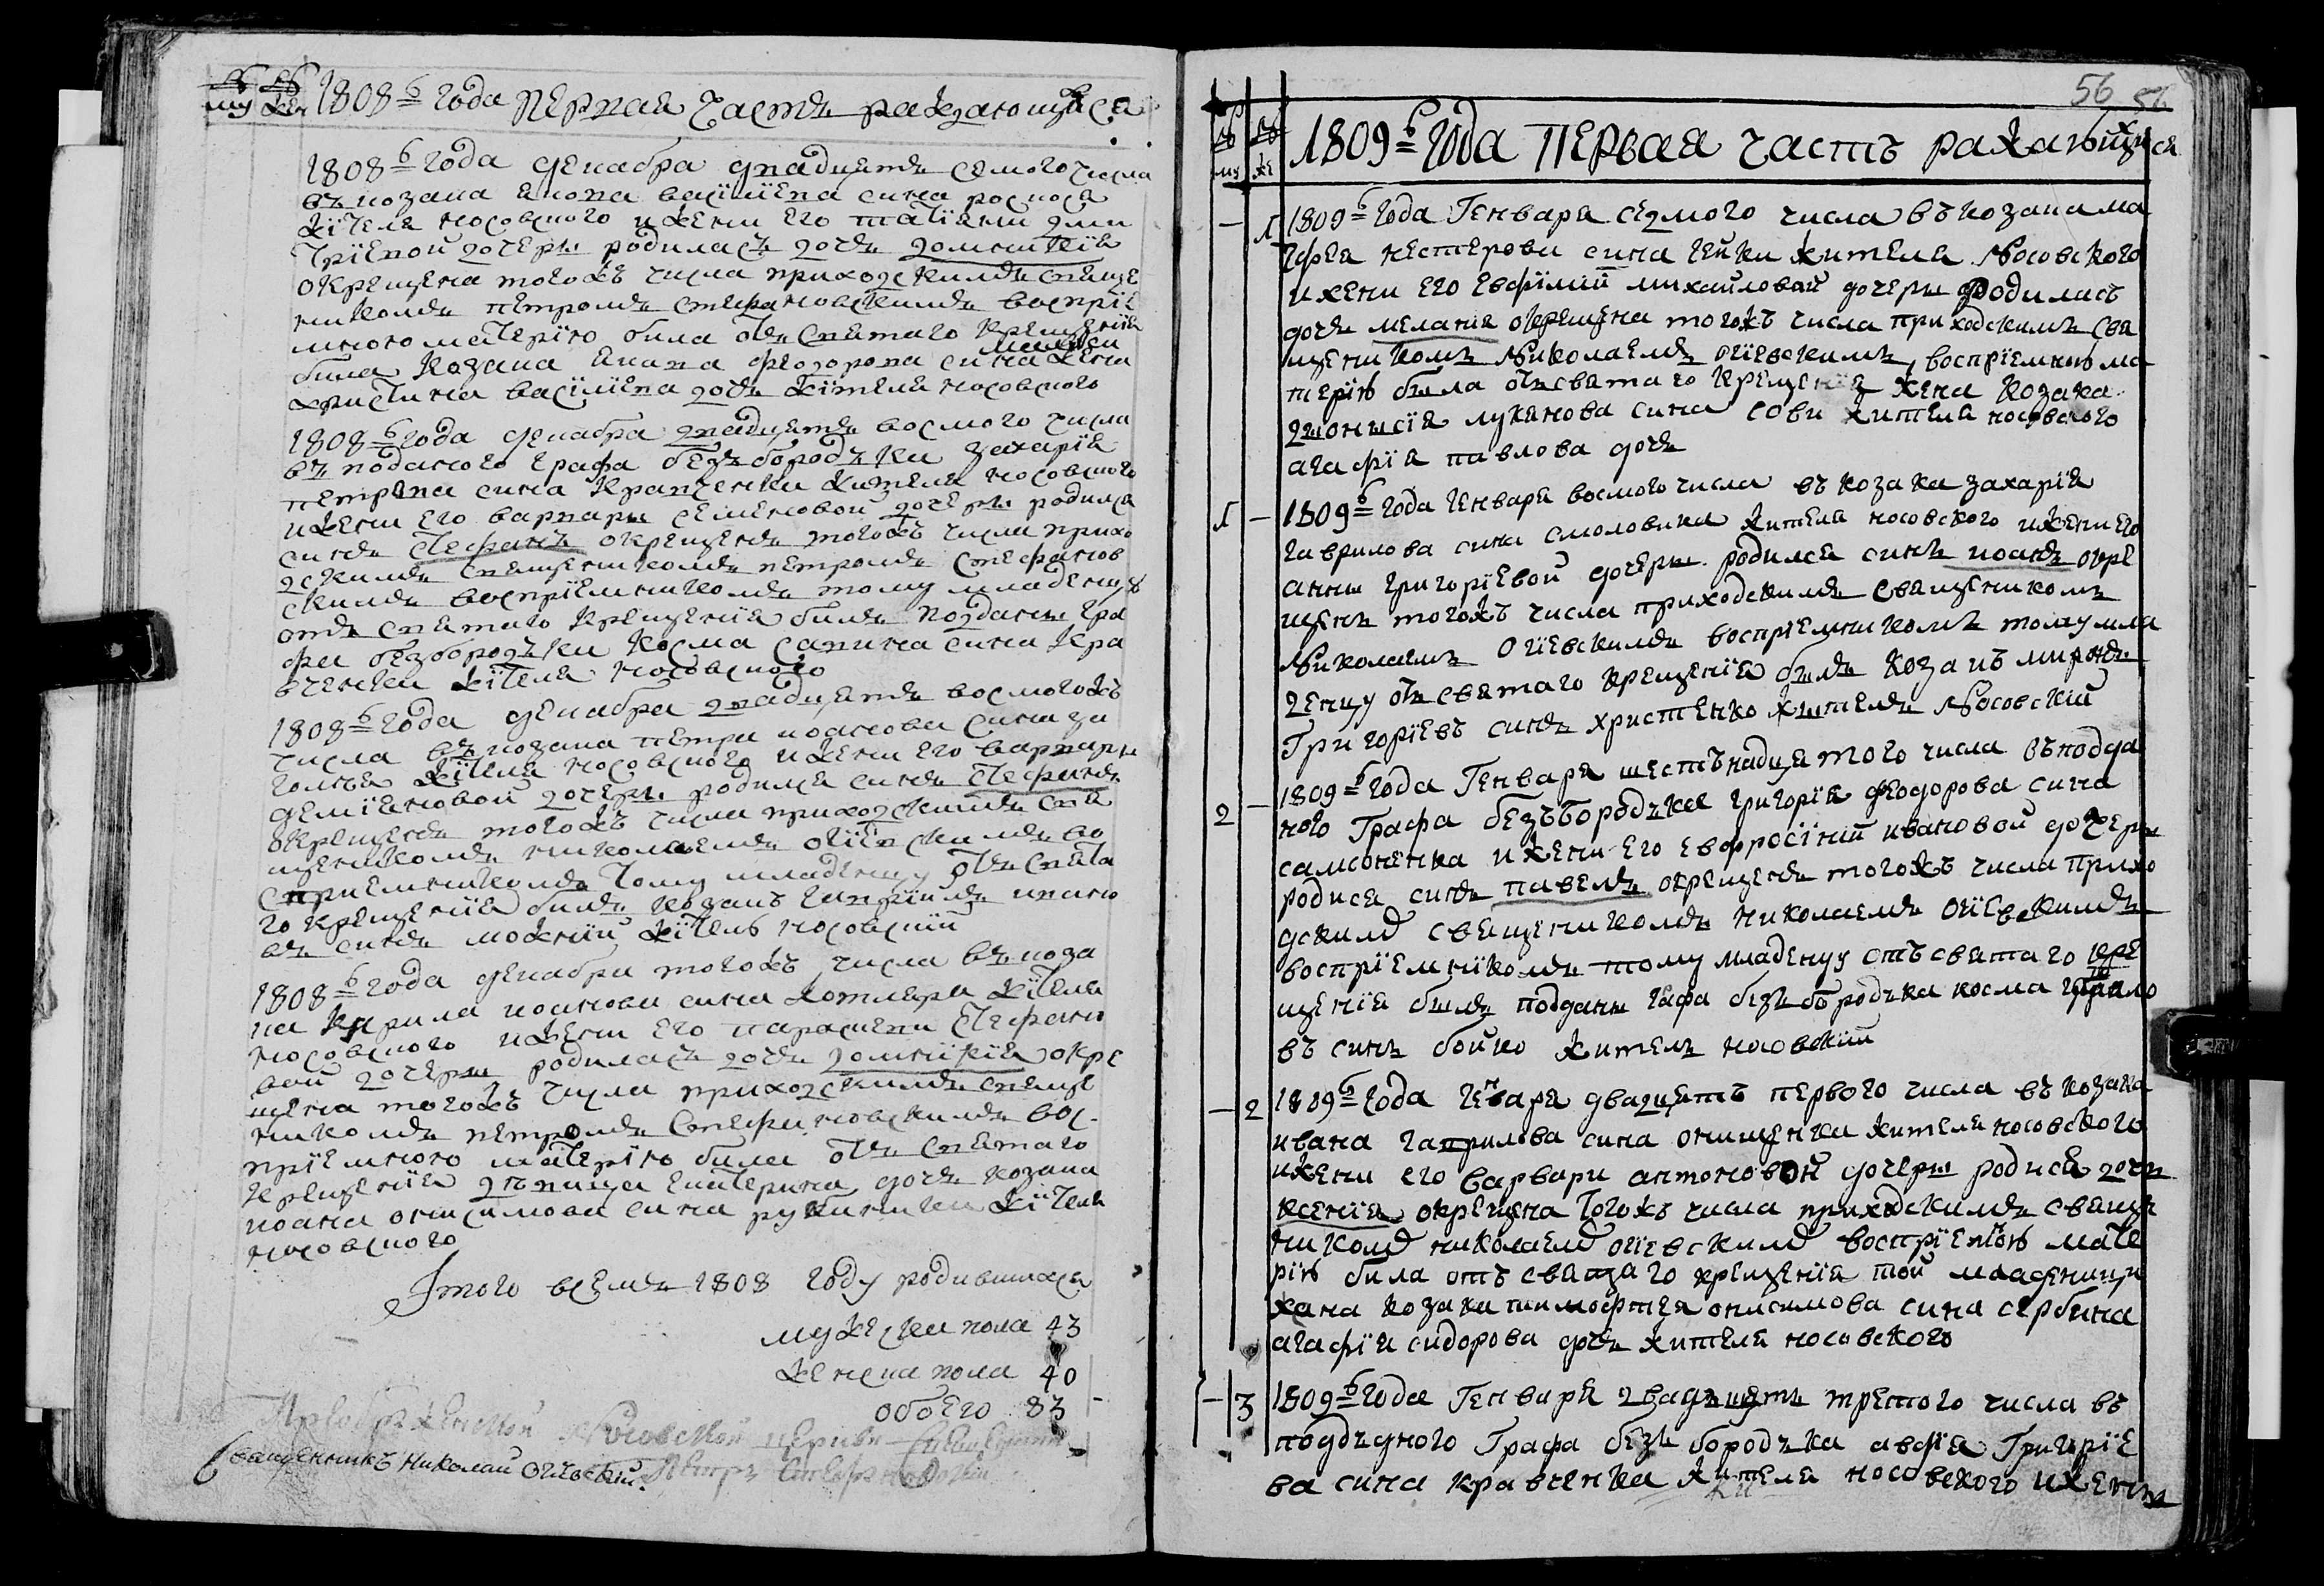 му же 1808го года первая часть раждающихся
1808го года декабра двадцять семого числа
въ козака якова василиева сина
жителя носовского и жени его татіяни дми
тріевой дочери родилась дочь домникія
окрещена тогожъ числа приходскимъ свяще
никомъ петромъ стефановскимъ воспріе
мною матерію била отъ святаго крещенія
била козака якова феодорова сина жена
христина василиева дочь жителя носовского
1808го года декабра двадцять восмого числа
въ поданого графа безъбородъка захарія
петрова сина кравченка жителя носовского
и жени его варвари семеновой дочери родился
синъ стефанъ окрещенъ тогожъ числа прихо
дскимъ священикомъ петромъ стефанов
скимъ воспріемникомъ тому младенцу
отъ святаго крещенія билъ подани гра
фа безбородъка косма савина сина кра
вченка жителя носовского
1808го года декабра двадцять восмогожъ
числа въ козака петра иоанова сина за
жителя носовского и жени его варвари
деміяновой дочери родился синъ стефанъ
окрещенъ тогожъ числа приходскимъ свя
щеникомъ николаемъ огіевскимъ во
спріемникомъ тому младенцу отъ свята
го крещенія билъ козакъ гавріилъ ивано
въ синъ жітель носовскій
1808го года декабра тогожъ числа въ коза
ка кирила иоанова сина котляра жителя
носовского и жени его параскеви стефано
вой дочери родилась дочь домнікія окре
щена тогожъ числа приходскимъ свяще
никомъ петромъ стефановскимъ вос-
пріемною матерію била отъ святаго
крещенія дѣвица екатерина дочь козака
иоана онисимова сина жителя
носовского
Jтого всемъ 1808 году родившихся
мужеска пола 43
женска пола 40
обоего 83
Носовской церкви
Священникъ Николай Огіевскій. Петръ Стефановскій
56
му же 1809го Года Первая часть раждающихся
1 1809го Года Генваря седмого числа въ козака ма
тфея нестерова сина гейки жителя Носовского
и жени его Евфіміи михайловой дочери родилась
дочь меланія окрещена тогожъ числа приходскимъ свя
щеникомъ Николаемъ огіевскимъ, воспріемною ма
терію била отъ святаго крещенія жена козака
дионисія лукянова сина сови жителя носовского
агафія павлова дочь
1 1809го Года Генваря восмого числа въ козака захарія
гаврилова сина смоловика жителя носовского и жени его
анни григоріевой дочери родился синъ иоанъ окре
щенъ тогожъ числа приходскимъ священикомъ
Николаемъ Огіевскимъ воспріемникомъ тому мла
денцу отъ святаго крещенія билъ козакъ миронъ
Григоріевъ синъ христенко жителъ Носовскій
2 1809го Года Генваря шестънадцятого числа въ подда
ного Графа безъбородъка григорія феодорова сина
самоненка и жени его евфросініи ивановой дочери
родися синъ павелъ окрещенъ тогожъ числа прихо
дскимъ священикомъ николаемъ огіевскимъ
воспріемнікомъ тому младенцу отъ святаго кре
щенія билъ подданы гафа безъбородъка косма гаврило
въ синъ бойко жителъ носовскій
2 1809го Года Генваря двадцять первого числа въ козака
ивана гаврилова сина онищенка жителя носовского
и жени его варвари антоновой дочери родися дочь
ксенія окрещена тогожъ числа приходскимъ свяще
никомъ николаемъ огіевскимъ воспріемною мате
рію била отъ святаго крещенія той младеници
жена козака тимофтея онисимова сина сербина
агафія сидорова дочь жителя носовского
3 1809го Года Генваря двадцять третого числа въ
подъдного Графа безъбородъка авфія Григоріе
ва сина кравченка жителя носовского и жени